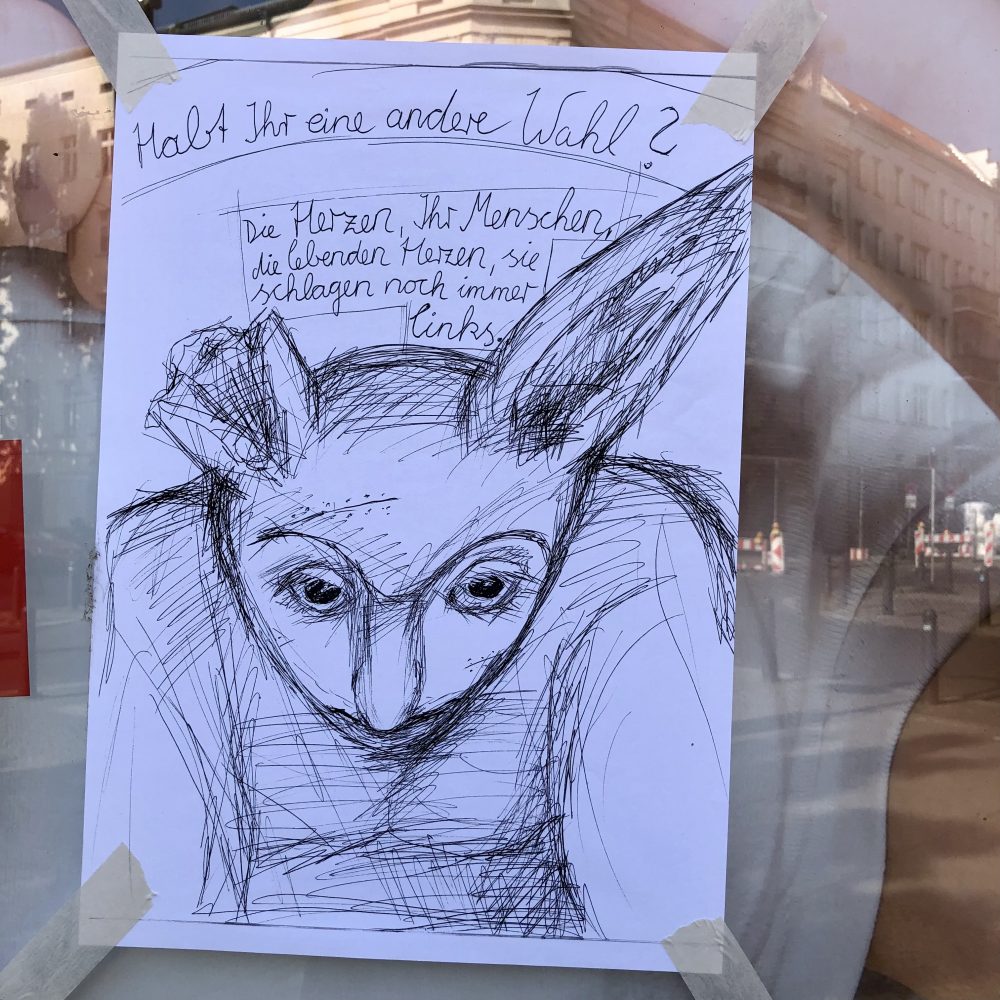 Habt Ihr eine andere Wahl?
Die Herzen, Ihr Menschen,
die lebenden Herzen, sie
schlagen noch immer
links.